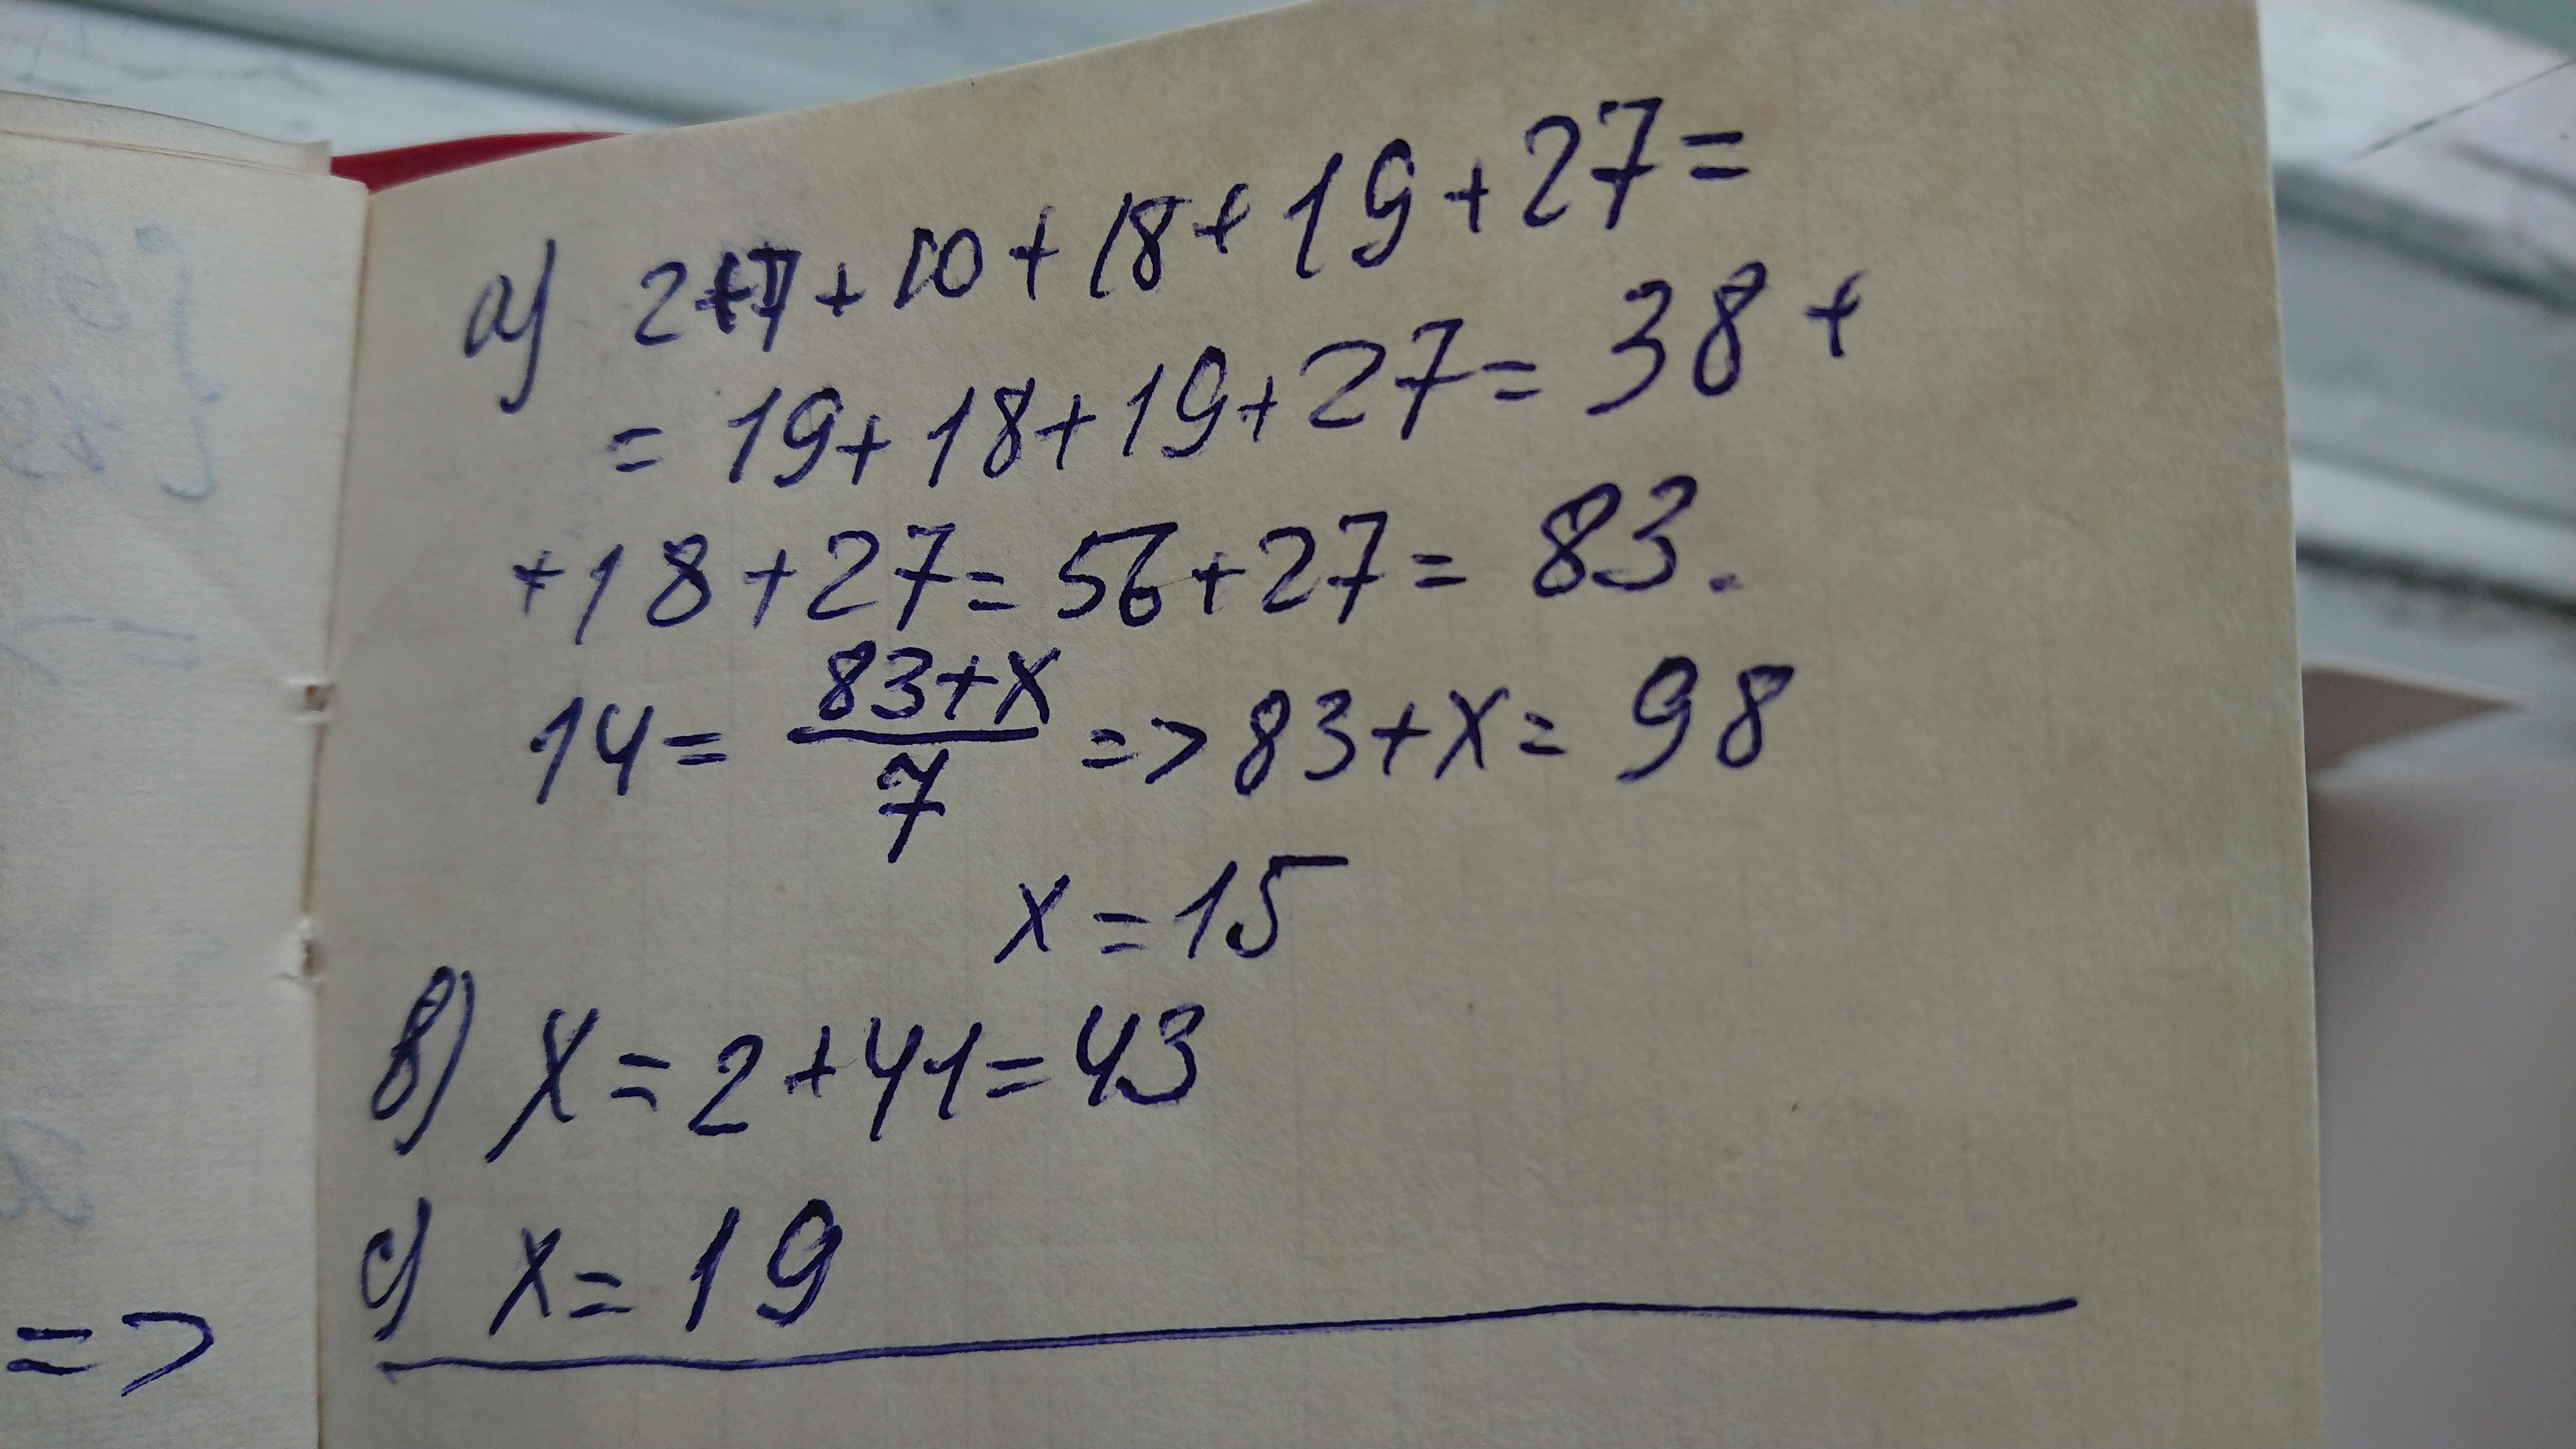 a) 2+7+10+18+19+27=
=19+18+19+27=38+
+18+27=56+27=83.
14=(83+x)/7=>83+x=98
x=15
в) x=2+41=43
c) x=19
=>